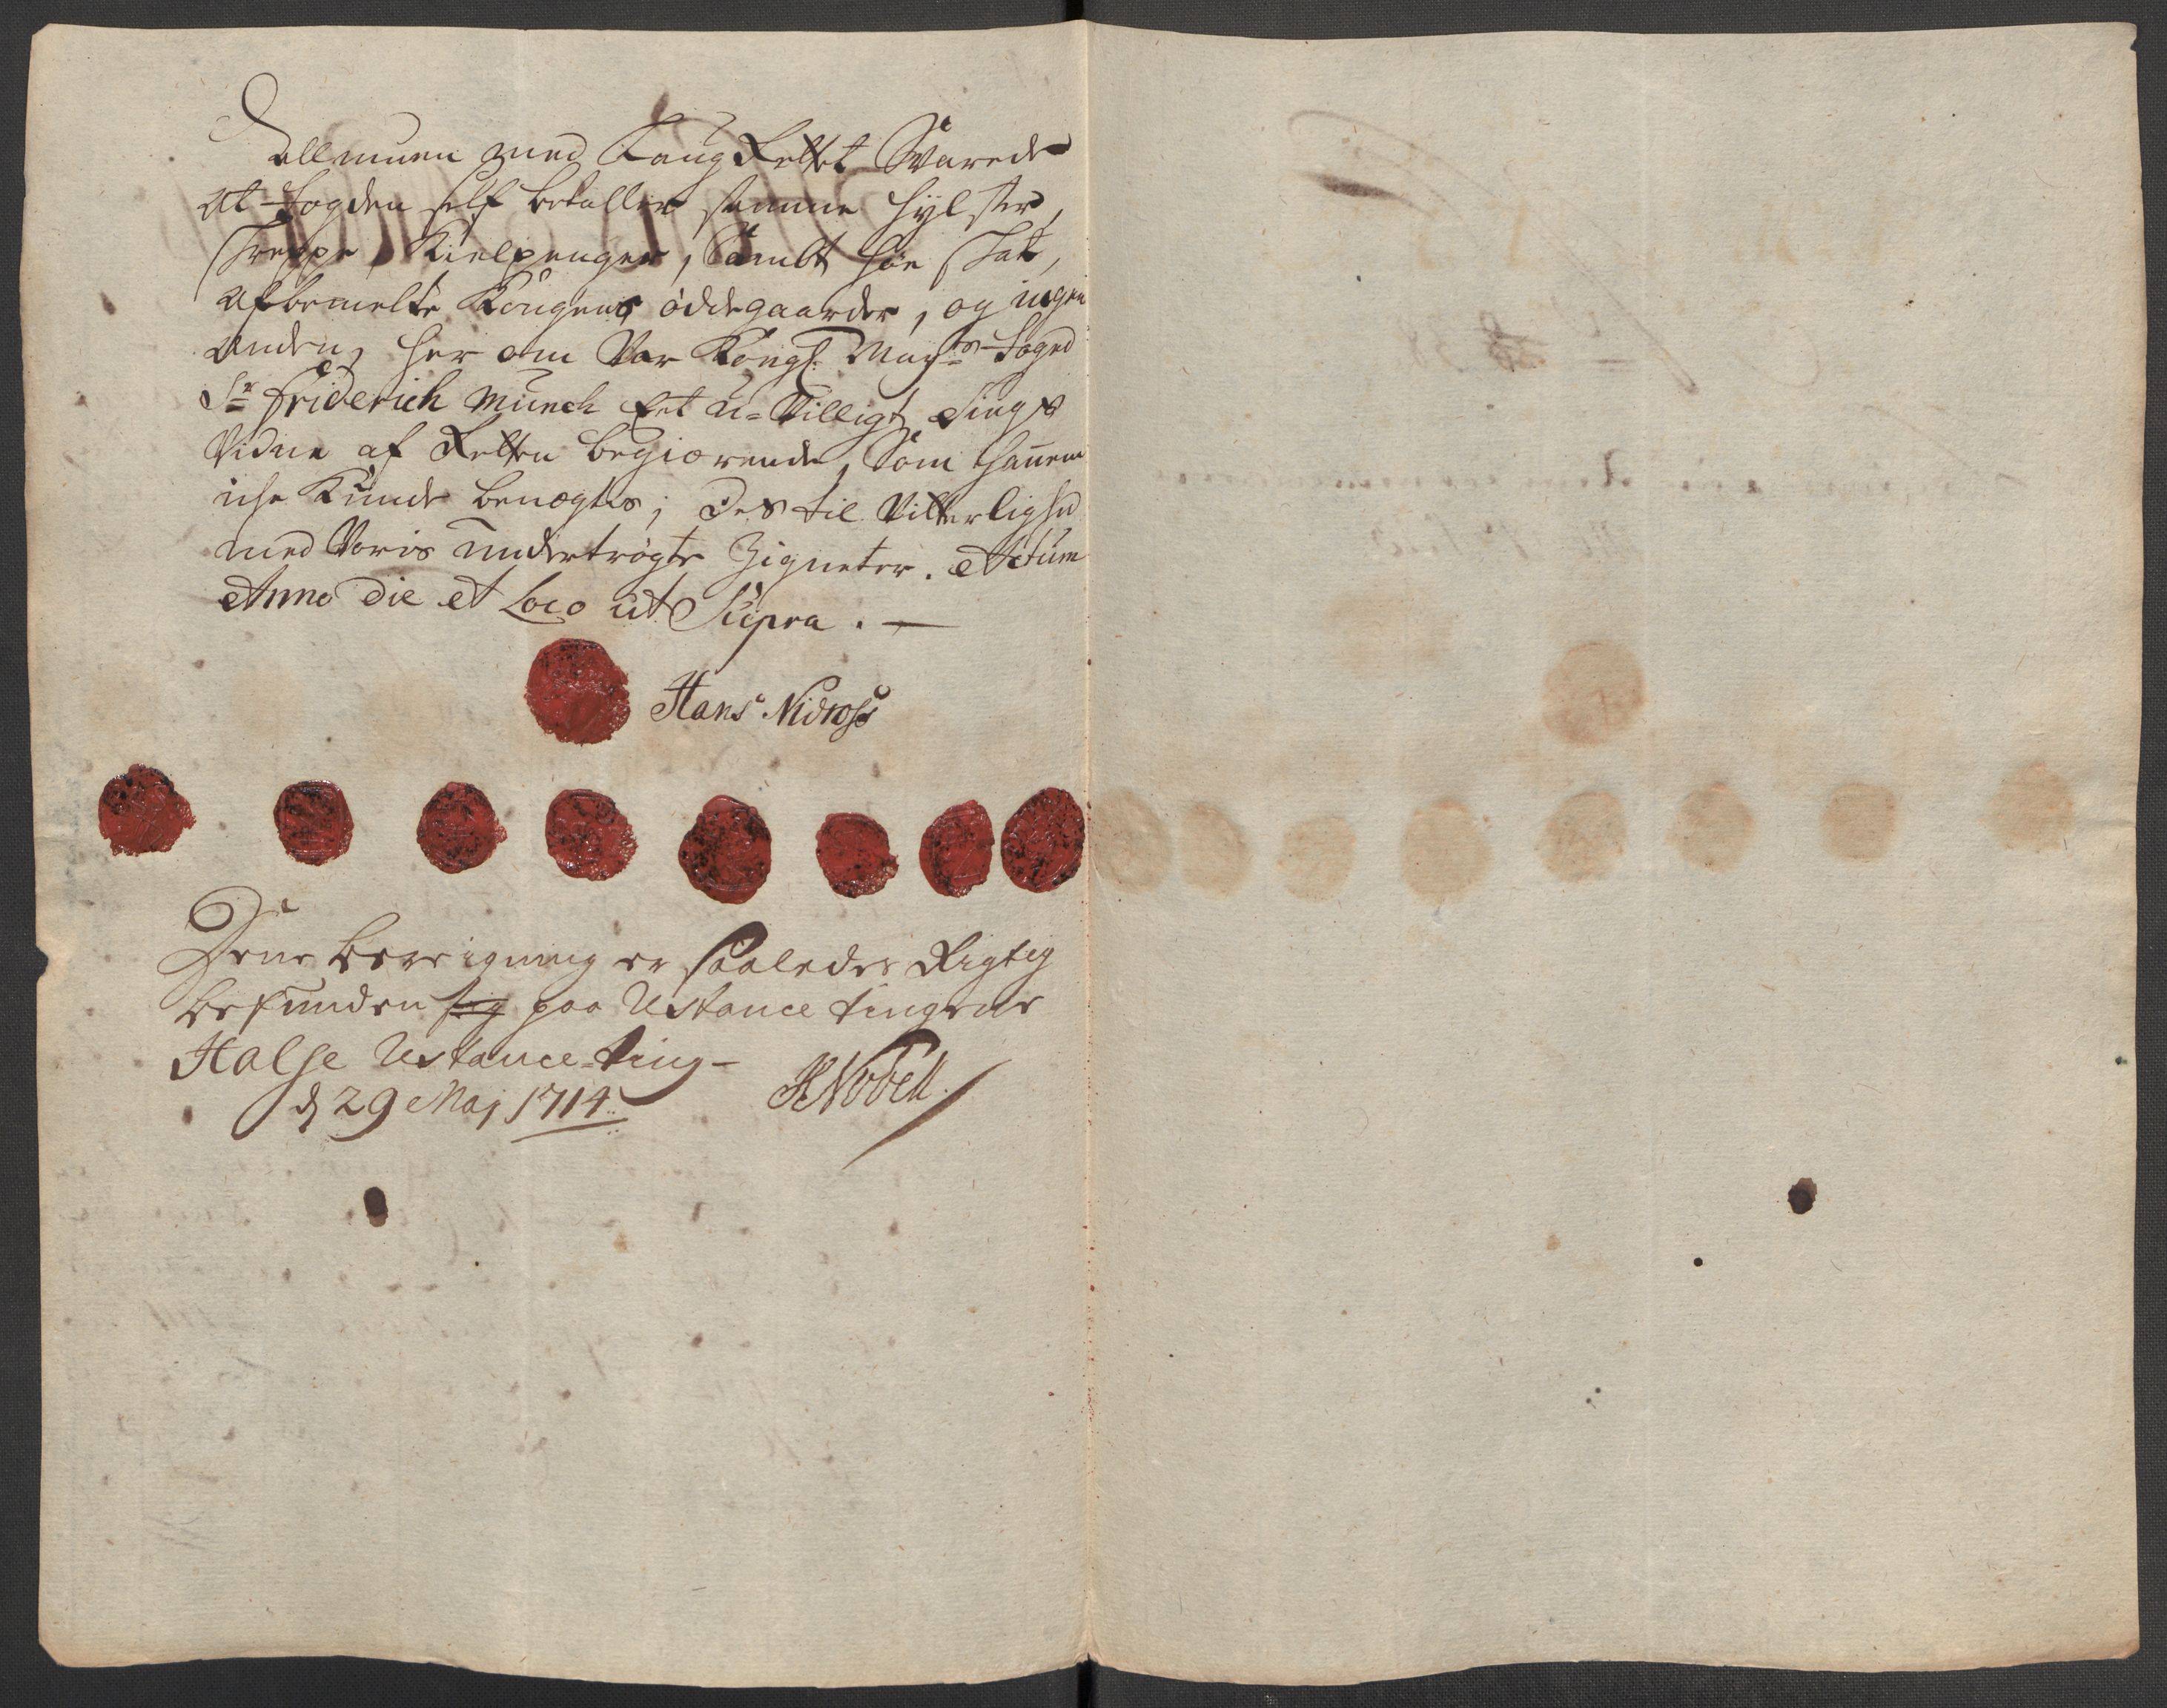 Allmuen med Laug Rettet Svarede
at Fogden self betaller samme Hylster,
Treppe, Kielpenger, Sambt Høe Skat,
af bemelte Kongens ödegaarder, og ingen
anden, her om Var Kongl: May:ts Foged
Sr Friderich Münch Eet u-Villigt Tings
Vidne af Retten begiærende, Som hannem
iche Kunde benægtes; Des til Vitterlighed
med Voris undertrøgte Zigneter. Actum
Anno Die et Loco ut Supra. —
Hans Nidross
Denne beregning er saaledes Rigtig
befunden paa Ustance tingene
Halse Ustance-Ting-
d 29 Maj 1714
HNobell.